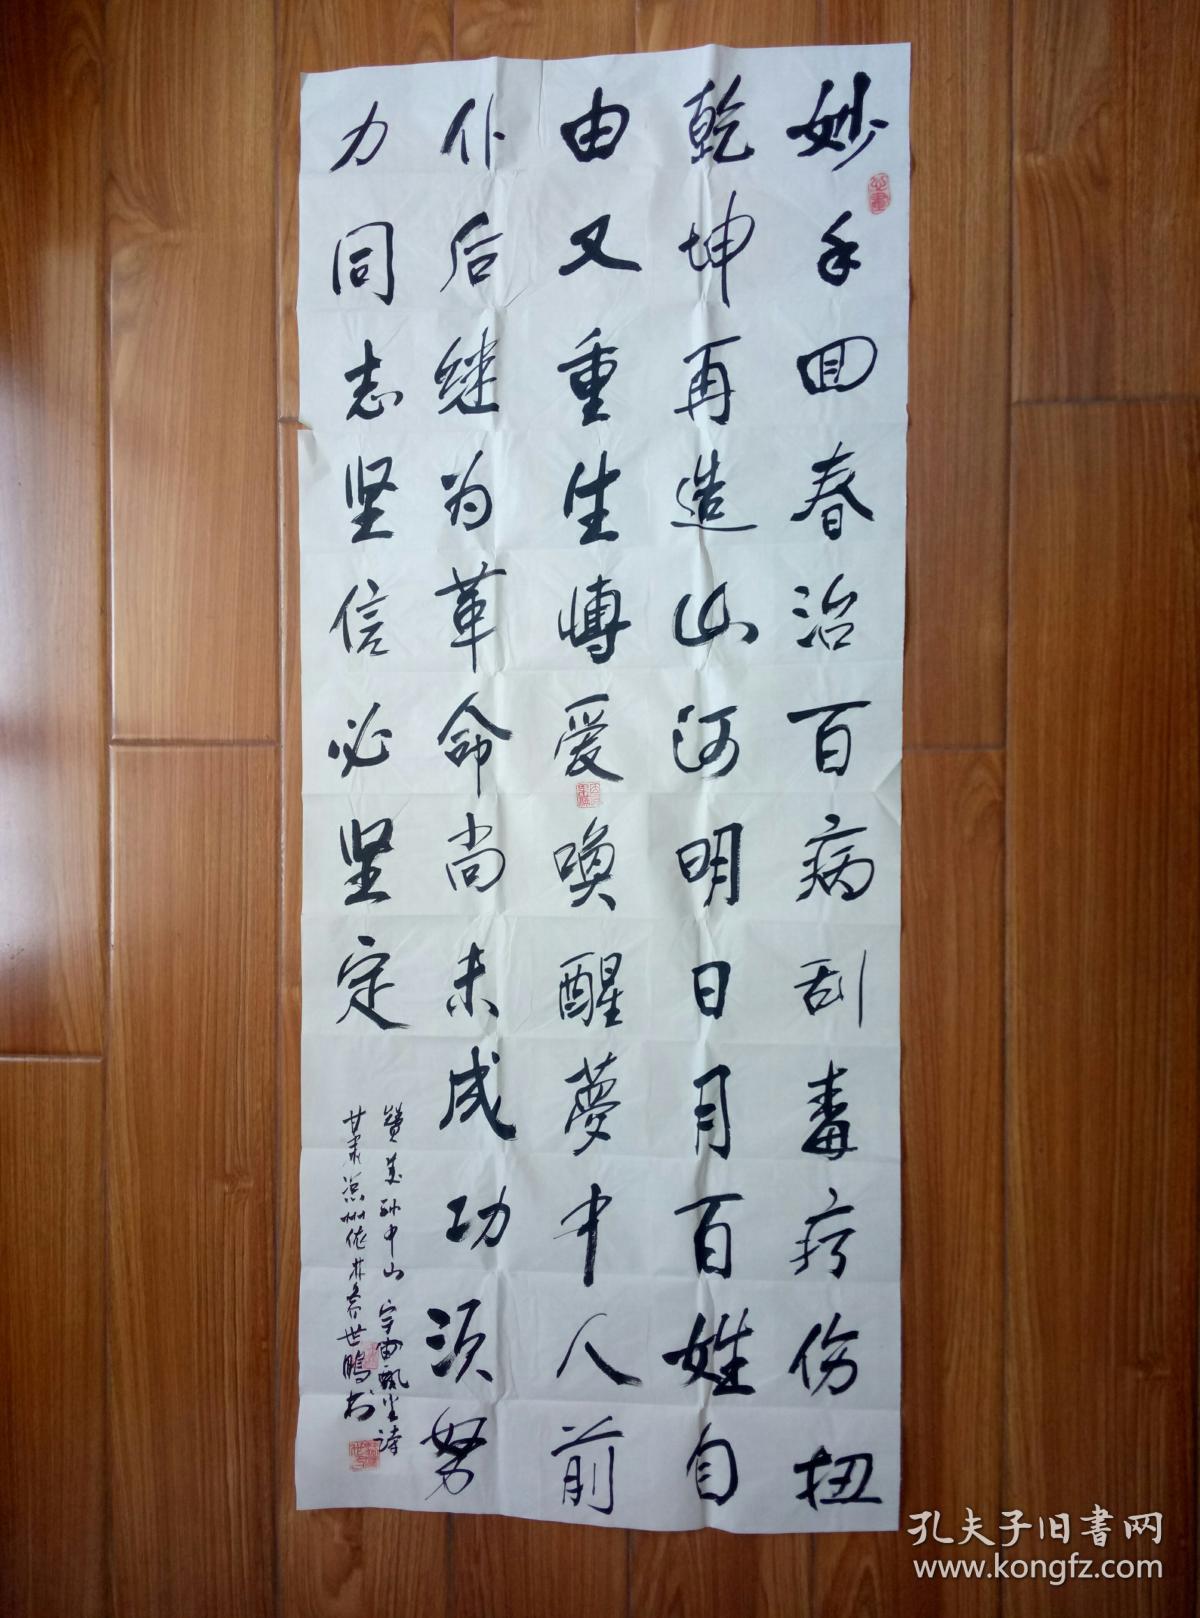 妙手回春治百病刮毒疗伤扭
乾坤再造山河明日月百姓自
由又重生博爱唤醒梦中人前
仆后继为革命尚未成功须努
力同志坚信必坚定
赞美孙中山宇宙飘尘诗
甘肃凉州佐林齐世鹏书
孔夫子旧书网
www.kongfz.com